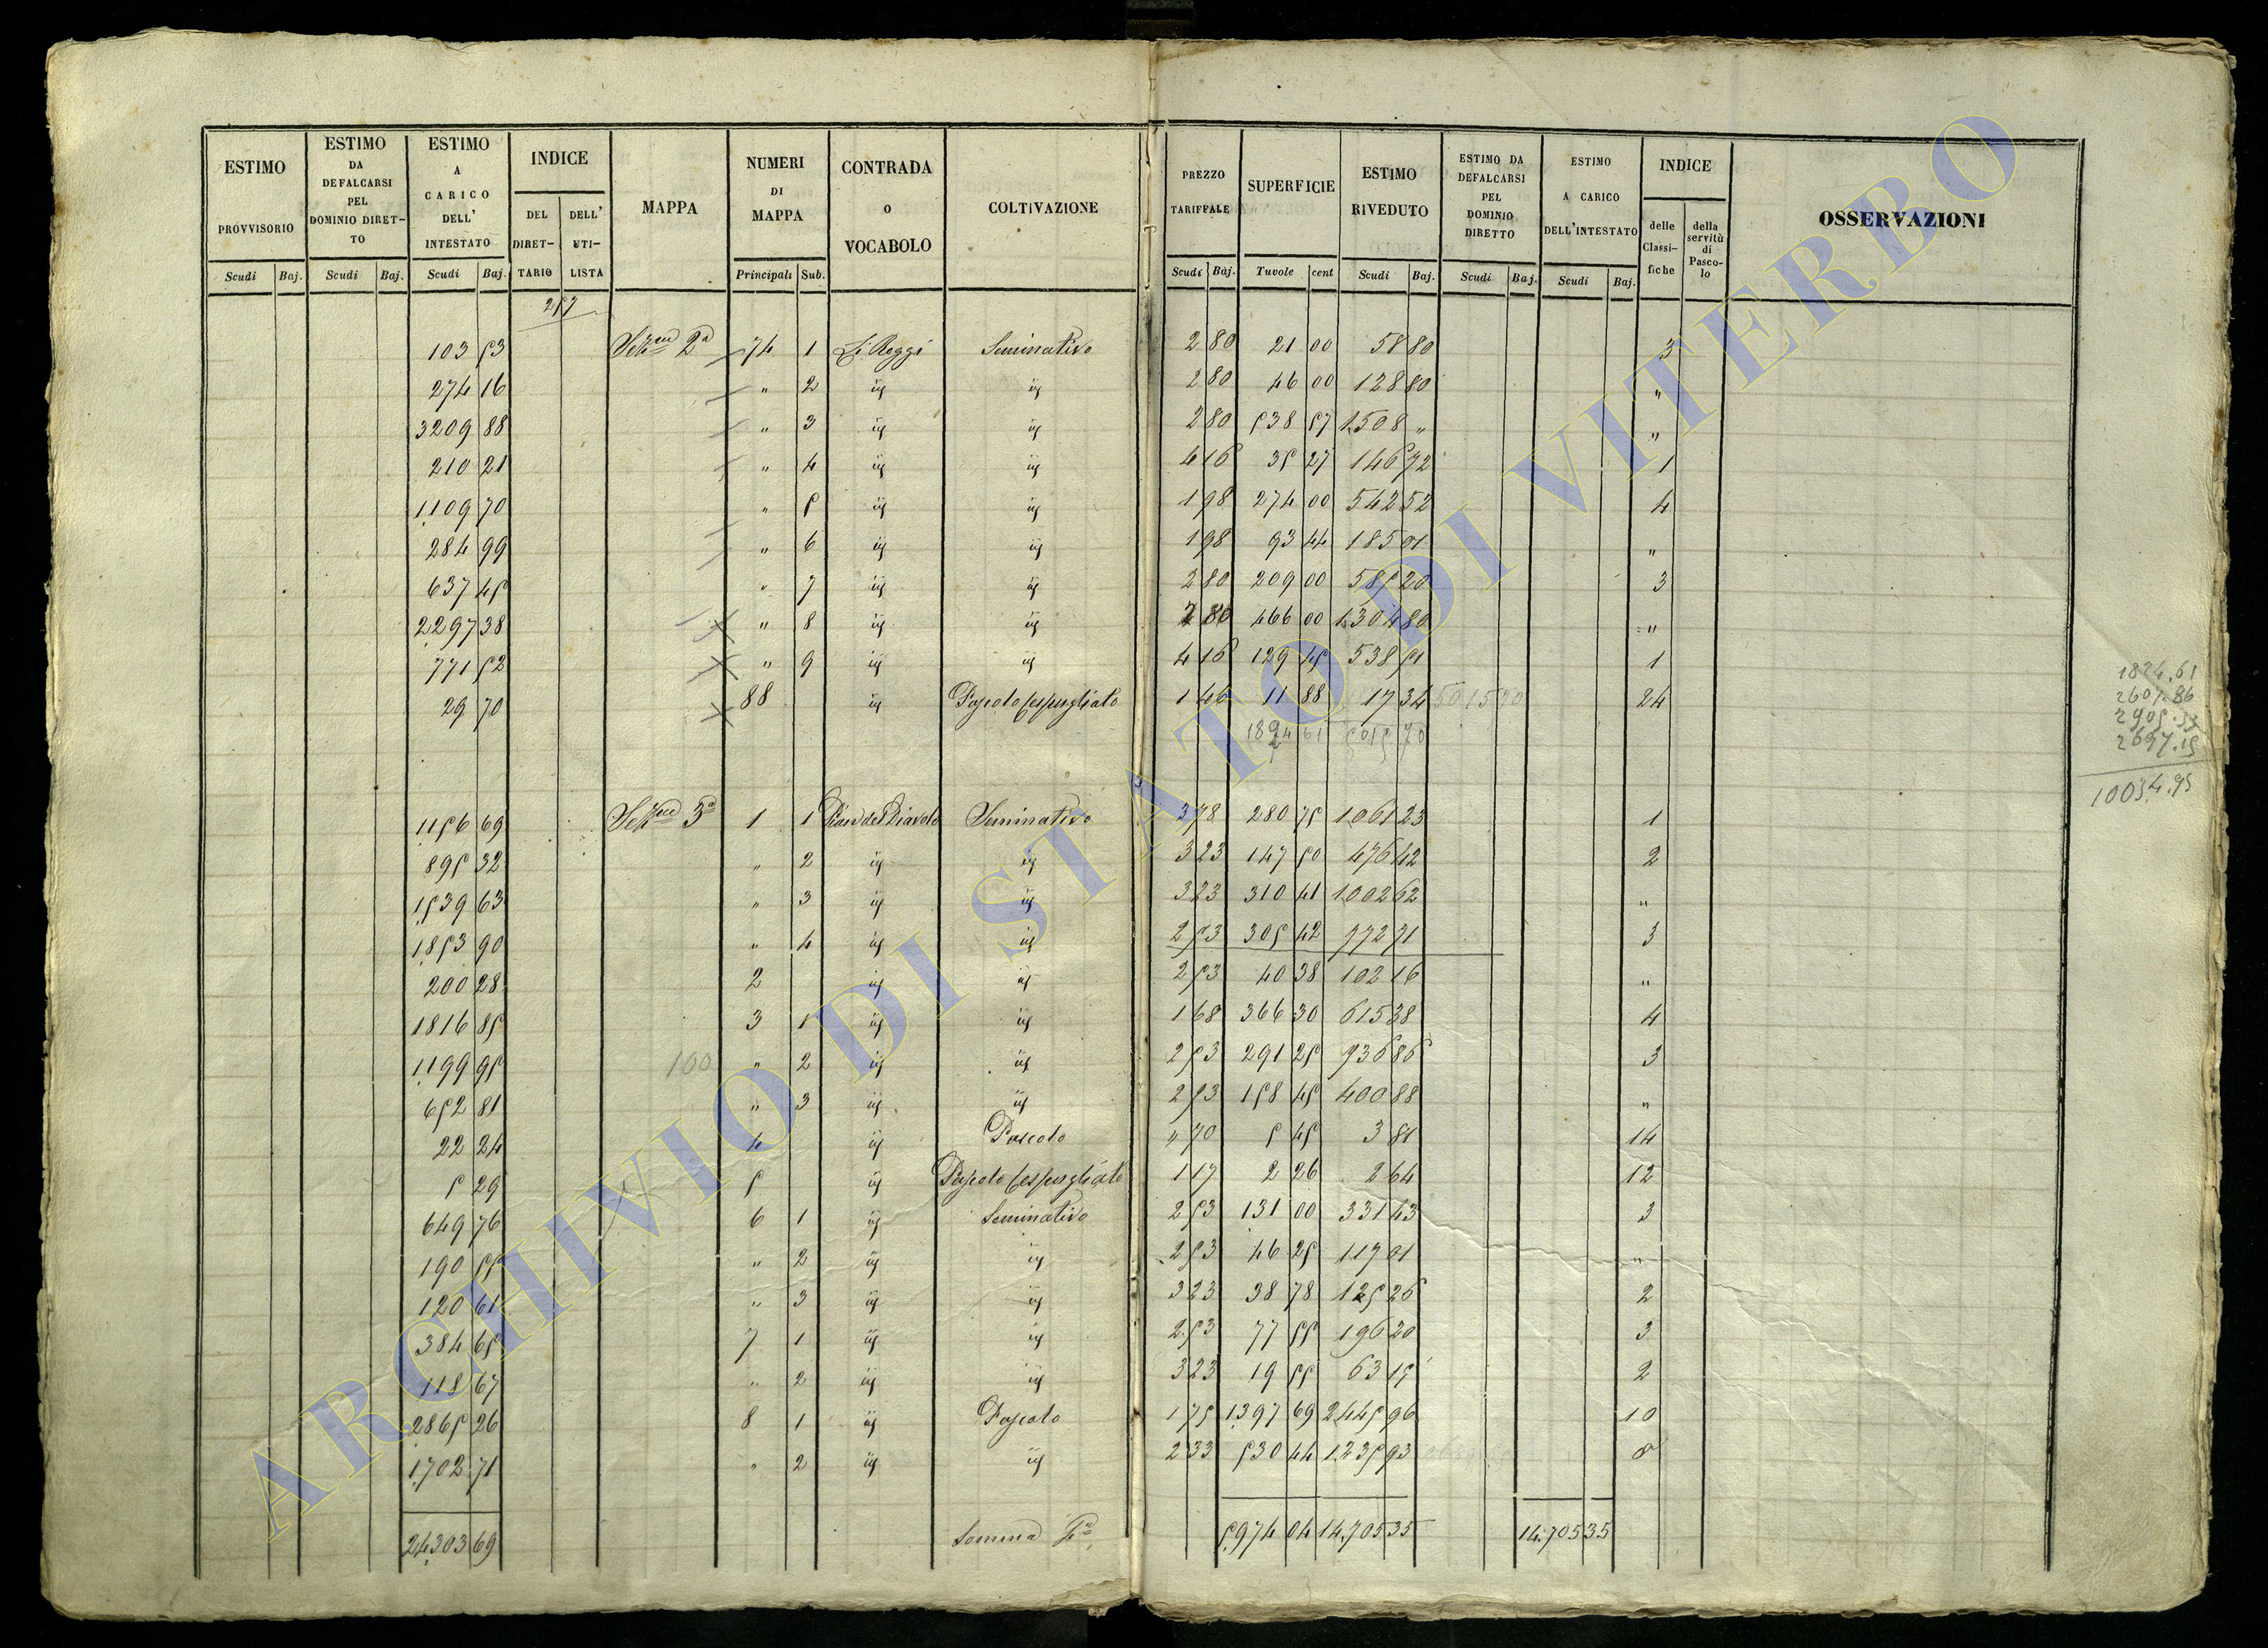 ESTIMO PROVVISORIO | ESTIMO DA DEFALCARSI PEL DOMINIO DIRETTO | ESTIMO A CARICO DELL' INTESTATO | INDICE DEL DIRETTARIO | DELL' UTILISTA | MAPPA | NUMERI DI MAPPA | CONTRADA o VOCABOLO | COLTIVAZIONE | PREZZO TARIFFALE | SUPERFICIE | ESTIMO RIVEDUTO | ESTIMO DA DEFALCARSI PEL DOMINIO DIRETTO | ESTIMO A CARICO DELL'INTESTATO | INDICE delle Classifiche | della servitù di Pascolo | OSSERVAZIONI
Scudi Baj. | Scudi Baj. | Scudi Baj. | Principali Sub. | Scudi Baj. | Tavole cent | Scudi Baj. | Scudi Baj. | Scudi Baj.
257
103 53 | Sezne 2a | 74 | 1 | Li Roggi | Seminativo | 2 80 | 21 00 | 58 80 | 3
274 16 | " | 2 | id | id | 2 80 | 46 00 | 128 80 | "
3209 88 | " | 3 | id | id | 2 80 | 538 57 | 1508 " | "
210 21 | " | 4 | id | id | 4 16 | 35 27 | 146 72 | 1
1109 70 | " | 5 | id | id | 1 98 | 274 00 | 542 52 | 4
284 99 | " | 6 | id | id | 1 98 | 93 44 | 185 01 | "
637 45 | " | 7 | id | id | 2 80 | 209 00 | 585 20 | 3
2297 38 | " | 8 | id | id | 2 80 | 466 00 | 1304 80 | "
771 52 | " | 9 | id | id | 4 16 | 129 45 | 538 51 | 1
29 70 | 88 | id | Pascolo Cespugliato | 1 46 | 11 88 | 17 34 | 5015 70 | 24
1824 61 | 5015 70
1156 69 | Sezne 3a | 1 | 1 | Pian del Diavolo | Seminativo | 3 78 | 280 75 | 1061 23 | 1
895 32 | " | 2 | id | id | 3 23 | 147 50 | 476 42 | 2
1539 63 | " | 3 | id | id | 3 23 | 310 41 | 1002 62 | "
1853 90 | " | 4 | id | id | 2 53 | 305 42 | 772 71 | 3
200 28 | 2 | id | id | 2 53 | 40 38 | 102 16 | "
1816 85 | 3 | 1 | id | id | 1 68 | 366 30 | 615 38 | 4
1199 95 | 100 | " | 2 | id | id | 2 53 | 291 25 | 736 86 | 3
652 81 | " | 3 | id | id | 2 53 | 158 45 | 400 88 | "
22 24 | 4 | id | Pascolo | " 70 | 5 45 | 3 81 | 14
5 29 | 5 | id | Pascolo Cespugliato | 1 17 | 2 26 | 2 64 | 12
649 76 | 6 | 1 | id | Seminativo | 2 53 | 131 00 | 331 43 | 3
190 55 | " | 2 | id | id | 2 53 | 46 25 | 117 01 | "
120 61 | " | 3 | id | id | 3 23 | 38 78 | 125 26 | 2
384 65 | 7 | 1 | id | id | 2 53 | 77 55 | 196 20 | 3
118 67 | " | 2 | id | id | 3 23 | 19 55 | 63 15 | 2
2865 26 | 8 | 1 | id | Pascolo | 1 75 | 1397 69 | 2445 96 | 10
1702 71 | " | 2 | id | id | 2 33 | 530 44 | 1235 93 | 8
24303 69 | Somma | 5974 04 | 14,705 35 | 14,705 35
1824.61
2607.86
2905.33
2697.15
10034.95
ARCHIVIO DI STATO DI VITERBO